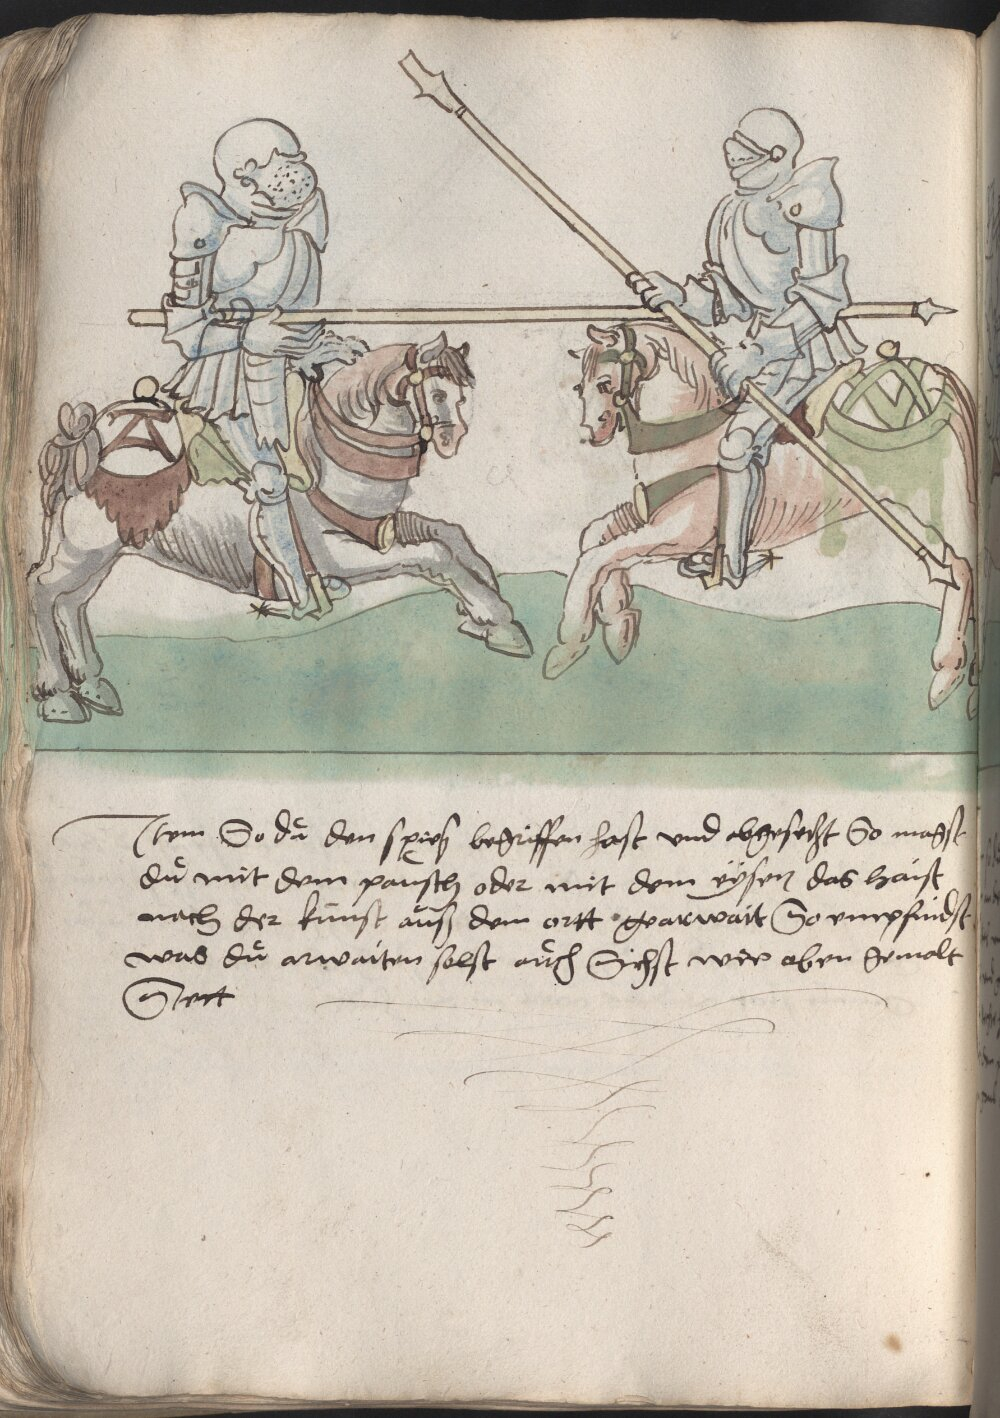 Item So dů den spieß begriffen hast vnd abgesetzt So magst
dů mit dem pausch oder mit dem eÿsen das haist
nach der kunst auß dem ortt gearwait So empfindst
was dů arwaiten solst aůch Sichst wie oben gemolt
Stett